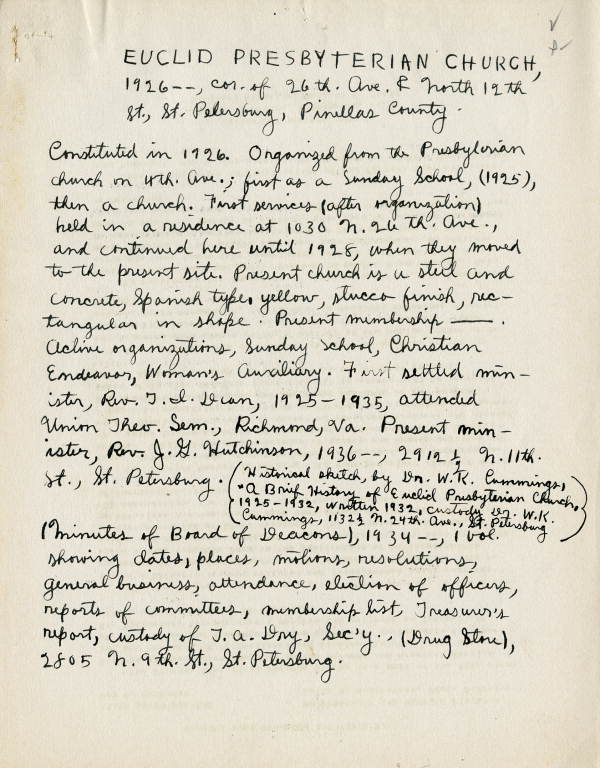 EUCLID PRESBYTERIAN CHURCH,
1926--, cor. of 26th. Ave. & North 12th
St., St. Petersburg, Pinellas County.
Constituted in 1926. Organized from the Presbyterian
church on 4th. Ave.; first as a Sunday School, (1925),
then a church. First services (after organization)
held in a residence at 1030 N. 26th. Ave.,
and continued here until 1928, when they moved
to the present site. Present church is a steel and
concrete, Spanish type, yellow, stucco finish, rec-
tangular in shape. Present membership ——.
Active organizations, Sunday School, Christian
Endeavor, Woman's Auxiliary. First settled min-
ister, Rev. T. I. Dean, 1925-1935, attended
Union Theo. Sem., Richmond, Va. Present min-
ister, Rev. J. G. Hutchinson, 1936--, 2912 1/2 N. 11th.
St., St. Petersburg. (Historical sketch, by Dr. W. K. Cummings,
"A Brief History of Euclid Presbyterian Church,
1925-1932, written 1932, custody Dr. W. K.
Cummings, 1132 1/2 N. 24th. Ave., St. Petersburg)
(Minutes of Board of Deacons), 1934--, 1 vol.
showing dates, places, motions, resolutions,
general business, attendance, election of officers,
reports of committees, membership list, Treasurer's
report, custody of T. A. Dry, Sec'y., (Drug Store),
2805 N. 9th. St., St. Petersburg.